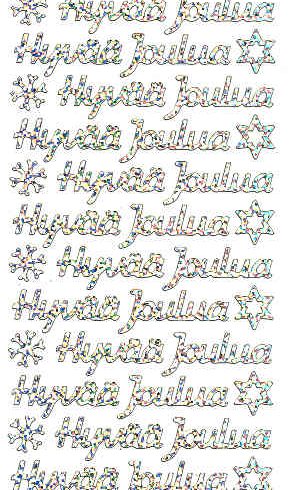 Hyvää Joulua
Hyvää Joulua
Hyvää Joulua
Hyvää Joulua
Hyvää Joulua
Hyvää Joulua
Hyvää Joulua
Hyvää Joulua
Hyvää Joulua
Hyvää Joulua
Hyvää Joulua
Hyvää Joulua